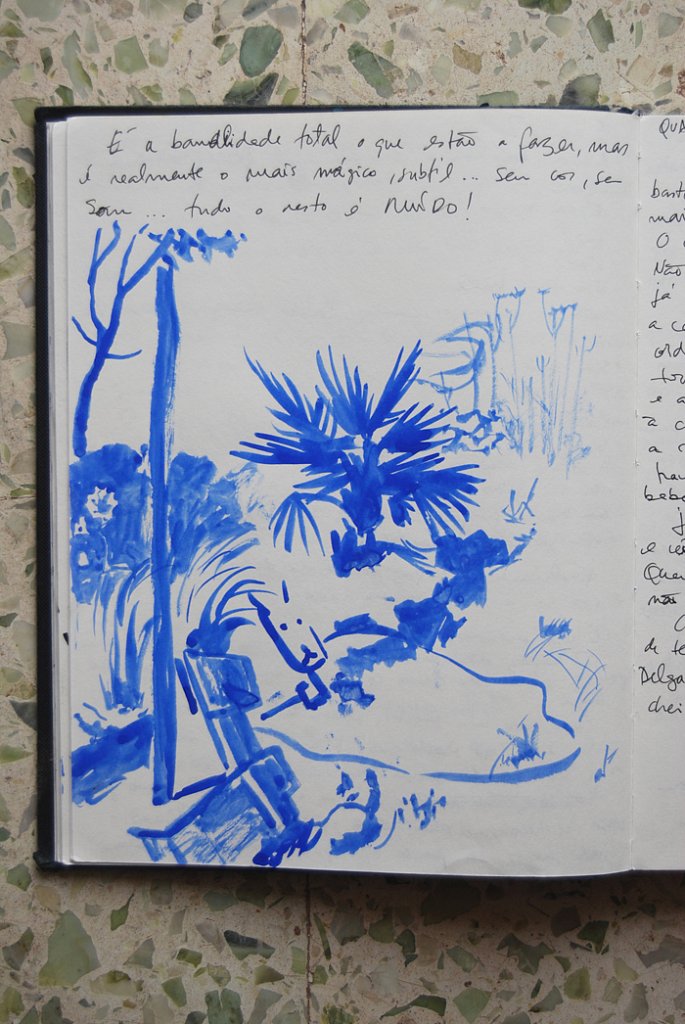 É a banalidade total o que estão a fazer, mas
é realmente o mais mágico, subtil... sem cor, sem
som... tudo o resto é RUÍDO!
QUA
bast
mais
O
Não
já
a co
ord
tou
e a
a c
a
hav
bebe
j
e cé
Quem
não
C
de te
Delga
chei